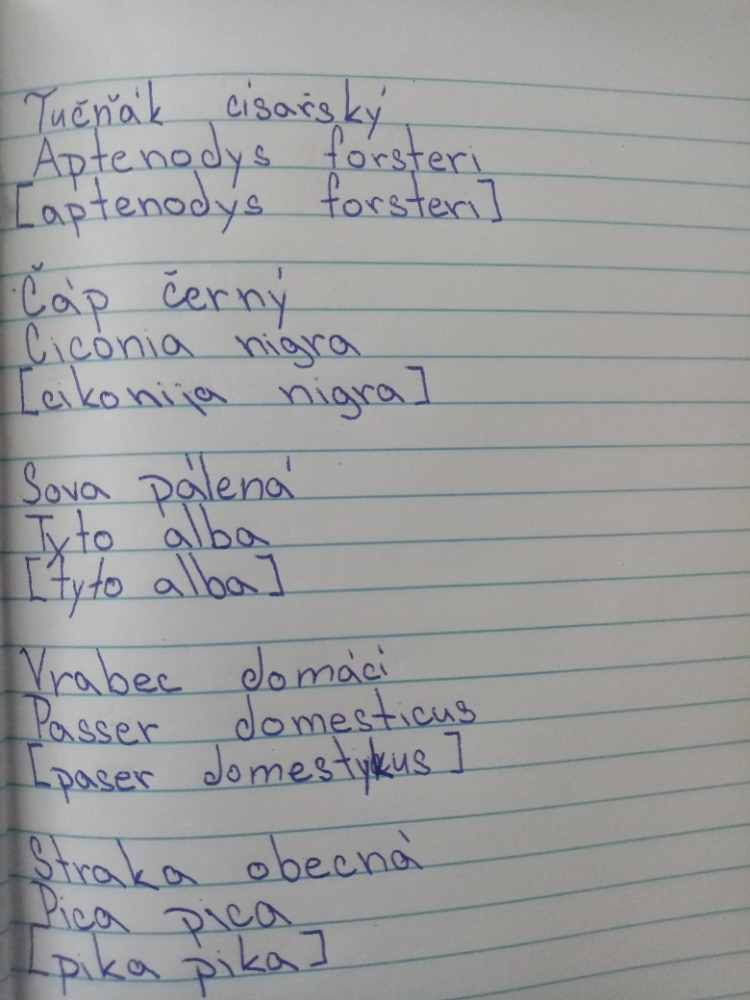 Tučňák cisařský
Aptenodys forsteri
[aptenodys forsteri]
Čáp černý
Ciconia nigra
[cikonija nigra]
Sova pálená
Tyto alba
[tyto alba]
Vrabec domácí
Passer domesticus
[paser domestykus]
Straka obecná
Pica pica
[pika pika]